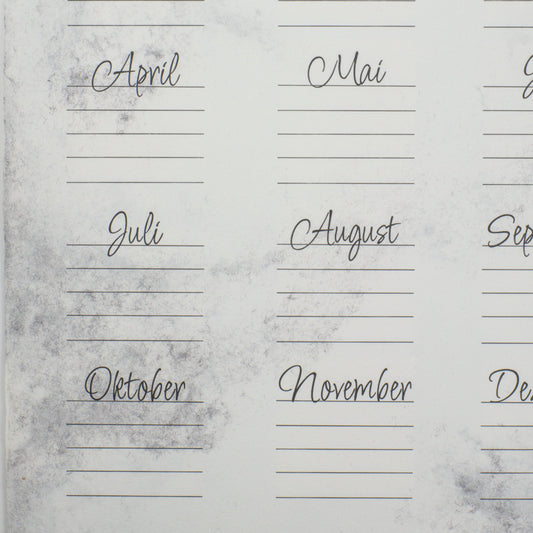 April Mai J
Juli August Sep
Oktober November De